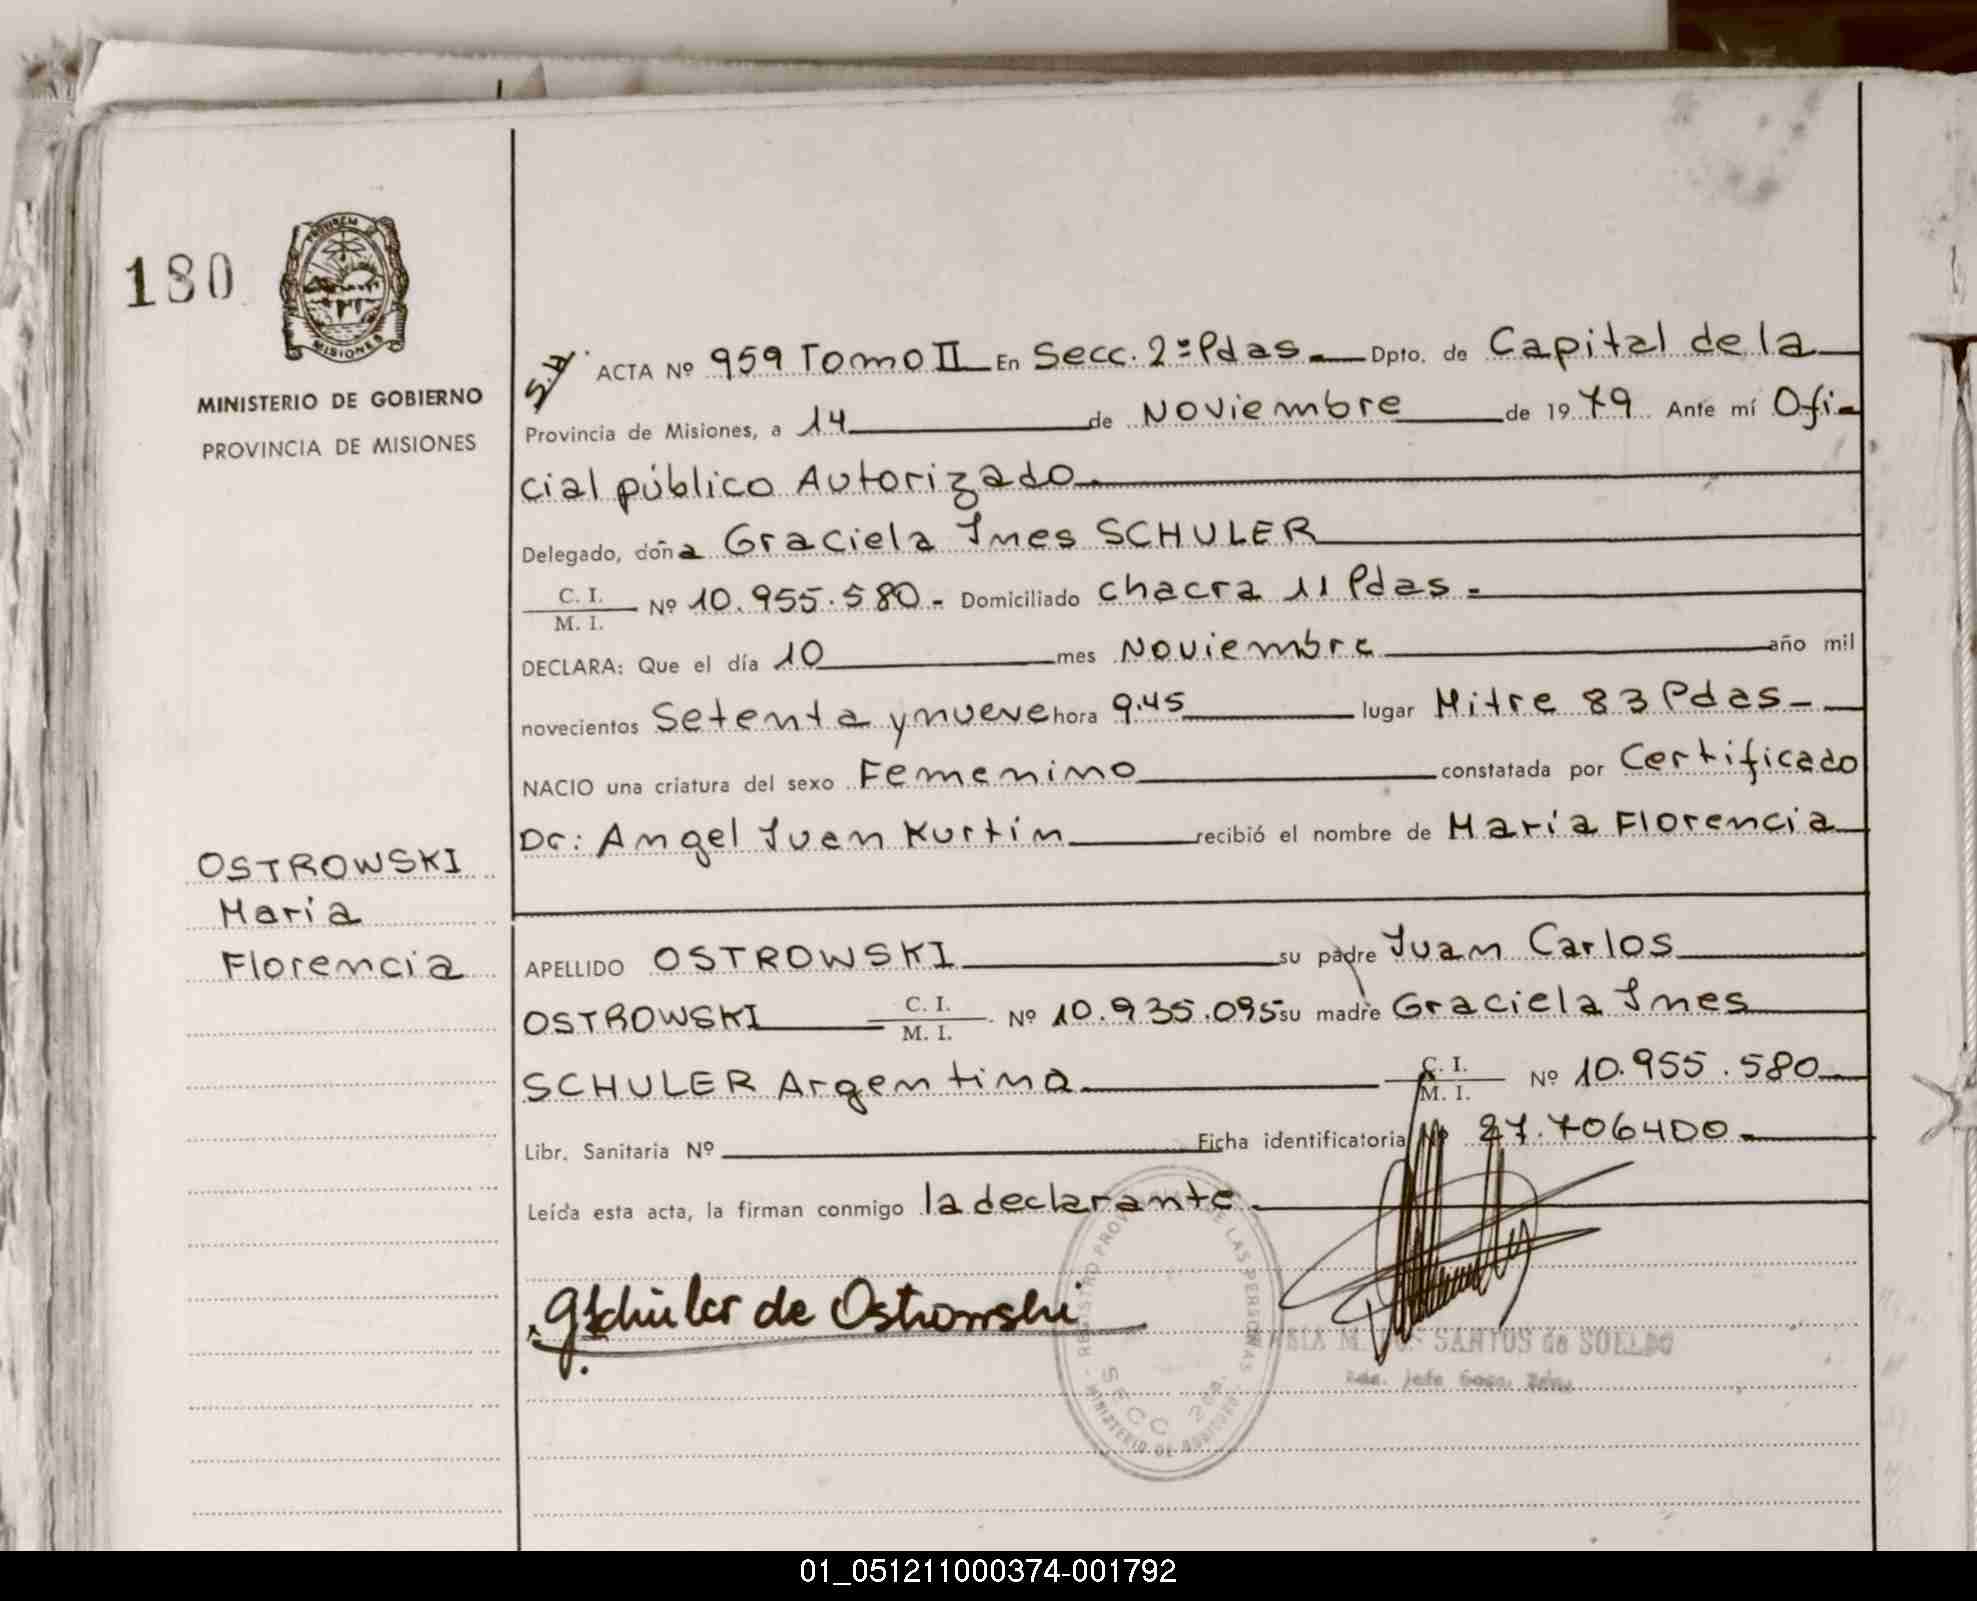 180
PROVINCIA
MISIONES
MINISTERIO DE GOBIERNO
PROVINCIA DE MISIONES
OSTROWSKI
María
Florencia
ACTA Nº 959 Tomo II En Secc. 2º Pdas. Dpto. de Capital de la
Provincia de Misiones, a 14 de Noviembre de 1979 Ante mí Ofi-
cial público Autorizado.
Delegado, doña Graciela Ines SCHULER
C. I.
M. I. Nº 10.955.580. Domiciliado chacra 11 Pdas.
DECLARA: Que el día 10 mes Noviembre año mil
novecientos Setenta y nueve hora 9.45 lugar Mitre 83 Pdas-
NACIO una criatura del sexo Femenino constatada por Certificado
Dr: Angel Juan Kurtin recibió el nombre de María Florencia
APELLIDO OSTROWSKI su padre Juan Carlos
OSTROWSKI C. I. M. I. Nº 10.935.095 su madre Graciela Ines
SCHULER Argentina C. I. M. I. Nº 10.955.580
Libr. Sanitaria Nº Ficha identificatoria Nº 27.706400-
Leída esta acta, la firman conmigo la declarante.
G. Schüler de Ostrowski
REGISTRO PROV DE LAS PERSONAS
SECC 2da.
MINISTERIO DE GOBIERNO
SANTOS de SOELDO
01_051211000374-001792